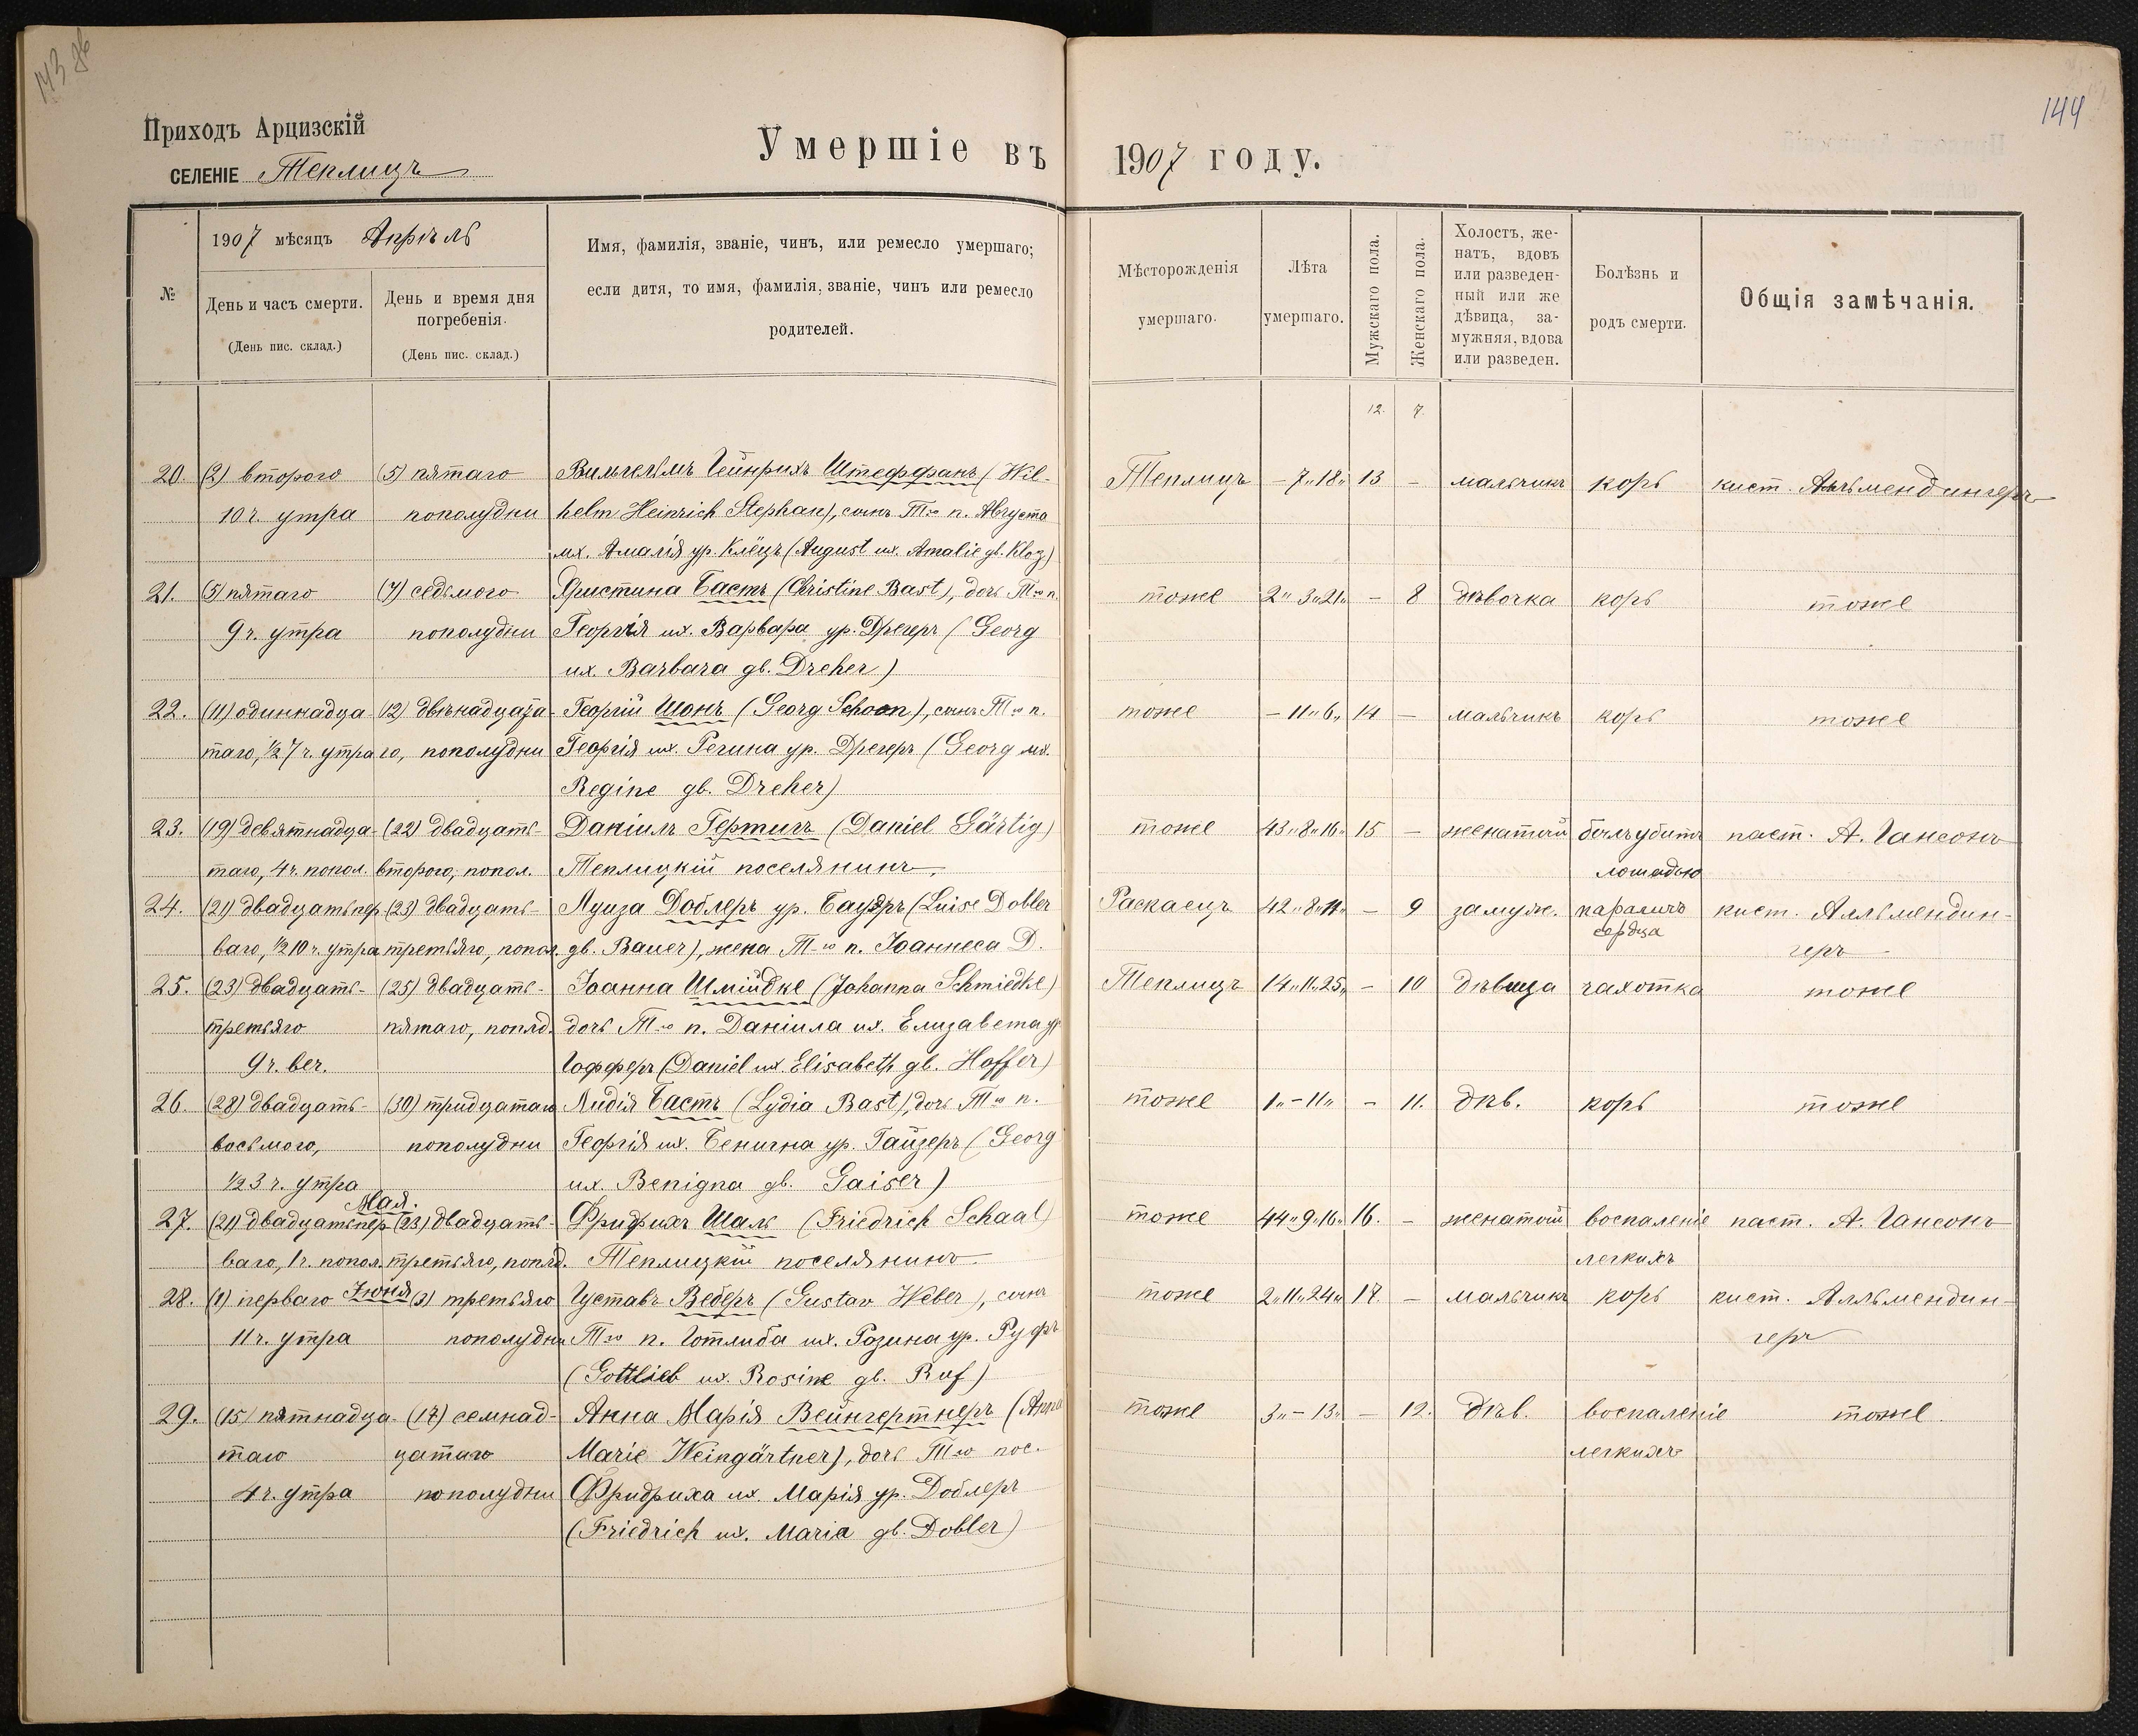 143 об
144
Приходъ Арцизскій
СЕЛЕНІЕ Теплицъ
Умершіе въ 1907 году.
№
1907 мѣсяцъ Апрѣль
День и часъ смерти.
(День пис. склад.)
День и время дня
погребенія.
(День пис. склад.)
Имя, фамилія, званіе, чинъ, или ремесло умершаго;
если дитя, то имя, фамилія, званіе, чинъ или ремесло
родителей.
Мѣсторожденія
умершаго.
Лѣта
умершаго.
Мужскаго пола.
Женскаго пола.
Холостъ, же-
натъ, вдовъ
или разведен-
ный или же
дѣвица, за-
мужняя, вдова
или разведен.
Болѣзнь и
родъ смерти.
Общія замѣчанія.
12. 7.
20. (2) второго (5) пятаго Вильгельмъ Гейнрихъ Штеффанъ (Wil- Теплицъ - 7 „ 18 „ 13 - мальчикъ корь кист. Алльмендингеръ
10 ч. утра пополудни helm Heinrich Stephan), сынъ Т-го п. Августа
их. Амалія ур. Клёцъ (August их. Amalie gb. Kloz)
21. (5) пятаго (7) седьмого Христина Бастъ (Christine Bast), дочь Т-го п. тоже 2 „ 3 „ 21 „ - 8 дѣвочка корь тоже
9 ч. утра пополудни Георгія их. Варвара ур. Дрегеръ (Georg
их. Barbara gb. Dreher)
22. (11) одиннадца- (12) двѣнадцата- Георгій Шонъ (Georg Schoon), сынъ Т-го п. тоже - 11 „ 6 „ 14 - мальчикъ корь тоже
таго, ½ 7 ч. утра го, пополудни Георгія их. Регина ур. Дрегеръ (Georg их.
Regine gb. Dreher)
23. (19) девятнадца- (22) двадцать- Даніилъ Гертигъ (Daniel Gärtig) тоже 43 „ 8 „ 16 „ 15 - женатый былъ убитъ паст. А. Гансонъ
таго, 4 ч. попол. второго, попол. Теплицкій поселянинъ. лошадью
24. (21) двадцать пер- (23) двадцать- Луиза Доблеръ ур. Бауэръ (Luise Dobler Раскаецъ 42 „ 8 „ 11 „ - 9 замуж. параличъ кист. Алльмендин-
ваго, ½ 10 ч. утра третьяго, попол. gb. Bauer), жена Т-го п. Іоаннеса Д. сердца геръ
25. (23) двадцать- (25) двадцать- Іоанна Шмидке (Johanna Schmiedke) Теплицъ 14 „ 11 „ 25 „ - 10 дѣвица чахотка тоже
третьяго пятаго, попол. дочь Т-го п. Даніила их. Елизавета ур.
9 ч. веч. Гофферъ (Daniel их. Elisabeth gb. Hoffer)
26. (28) двадцать- (30) тридцатаго Лидія Бастъ (Lydia Bast), дочь Т-го п. тоже 1 „ - 11 „ - 11. дѣв. корь тоже
восьмого, пополудни Георгія их. Бенигна ур. Гайзеръ (Georg
½ 3 ч. утра их. Benigna gb. Gaiser)
Мая.
27. (21) двадцать пер- (23) двадцать- Фридрихъ Шаль (Friedrich Schaal) тоже 44 „ 9 „ 16 „ 16. - женатый воспаленіе паст. А. Гансонъ
ваго, 1 ч. попол. третьяго, попол. Теплицкій поселянинъ легкихъ
28. (1) перваго Іюня (3) третьяго Густавъ Веберъ (Gustav Weber), сынъ тоже 2 „ 11 „ 24 „ 17. - мальчикъ корь кист. Алльмендин-
11 ч. утра пополудни Т-го п. Готлиба их. Розина ур. Руфъ геръ
(Gottlieb их. Rosine gb. Ruf)
29. (15) пятнадца- (17) семнад- Анна Марія Вейнгертнеръ (Anna тоже 3 „ - 13 „ - 12. дѣв. воспаленіе тоже.
таго цатаго Marie Weingärtner), дочь Т-го пос. легкихъ
4 ч. утра пополудни Фридриха их. Марія ур. Доблеръ
(Friedrich их. Maria gb. Dobler)